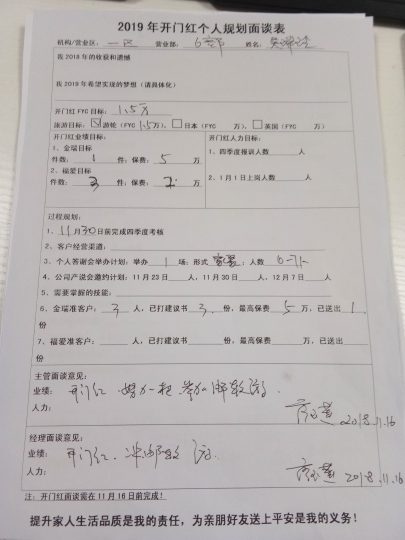 2019年开门红个人规划面谈表
机构/营业区：一区 营业部：6部 姓名：
我2018年的收获和遗憾
我2019年希望实现的梦想（请具体化）
开门红FYC目标：1.5万
旅游目标：☑游轮（FYC 1.5万），□日本（FYC 万），□英国（FYC 万）
开门红业绩目标： 开门红人力目标：
1、金瑞目标 1、四季度报训人数 人
件数：1件；保费：5万
2、福爱目标 2、1月1日上岗人数 人
件数：3件；保费： 万
过程规划：
1、11月30日前完成四季度考核
2、客户经营渠道：
3、个人答谢会举办计划：举办1场；形式 ；人数6-7人
4、公司产说会邀约计划：11月23日 人，11月30日 人，12月7日 人
5、需要掌握的技能：
6、金瑞准客户：3人，已打建议书3份，最高保费5万，已送出1
份
7、福爱准客户： 人，已打建议书 份，最高保费 万，已送出
份
主管面谈意见：
业绩：开门红 努力一把 参加邮轮游.
人力： 2018.11.16
经理面谈意见：
业绩：开门红.冲邮轮游.
人力： 2018.11.16
注：开门红面谈需在11月16日前完成！
提升家人生活品质是我的责任，为亲朋好友送上平安是我的义务！